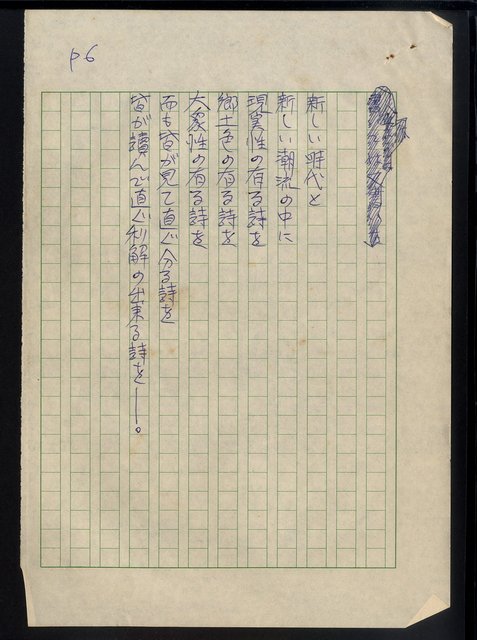 P6
新しい時代と
新しい潮流の中に
現実性の有る詩を
郷土色の有る詩を
大衆性の有る詩を
而も皆が見て直ぐ分る詩を
皆が讀んで直ぐ利解の出来る詩を——。